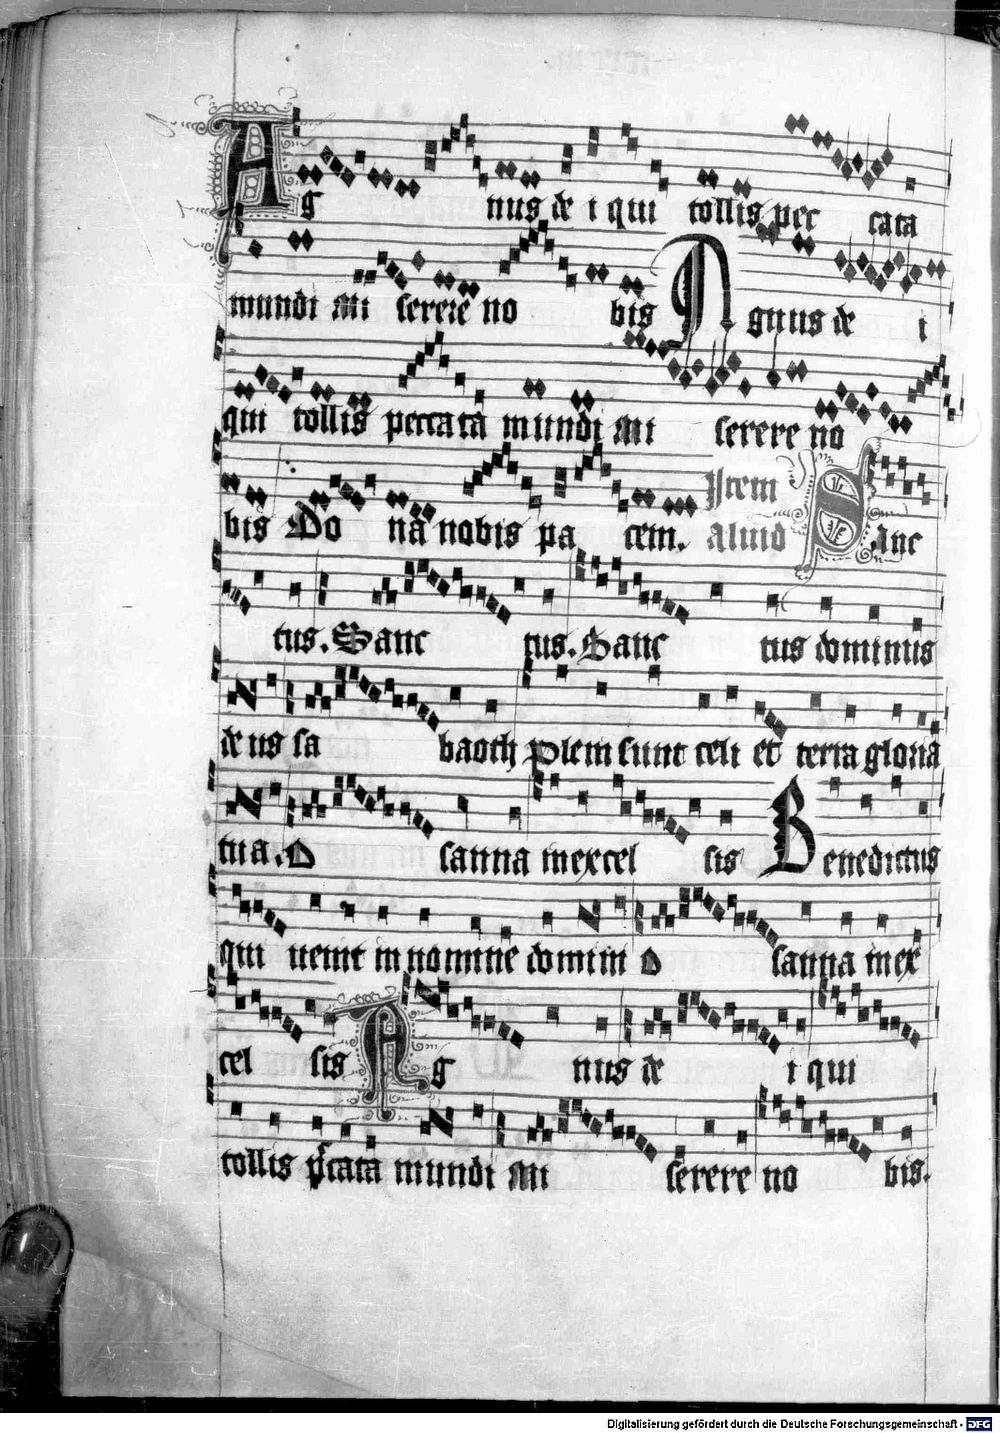 Ag nus de i qui tollis pec cata
mundi Mi serere no bis Agnus de i
qui tollis peccata mundi Mi serere no
bis Do na nobis pa cem. Item aliud Sanc
tus. Sanc tus. Sanc tus dominus
deus sa baoth Plem sunt celi et terra gloria
tua. O sanna in excel sis Benedictus
qui uenit in nomine domini O sanna in ex
cel sis Ag nus de i qui
tollis pccata mundi Mi serere no bis.
Digitalisierung gefördert durch die Deutsche Forschungsgemeinschaft - DFG